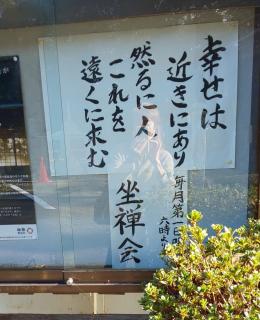 幸せは
近きにあり
然るに人
これを
遠くに求む
毎月第一日
六時より
坐禅会